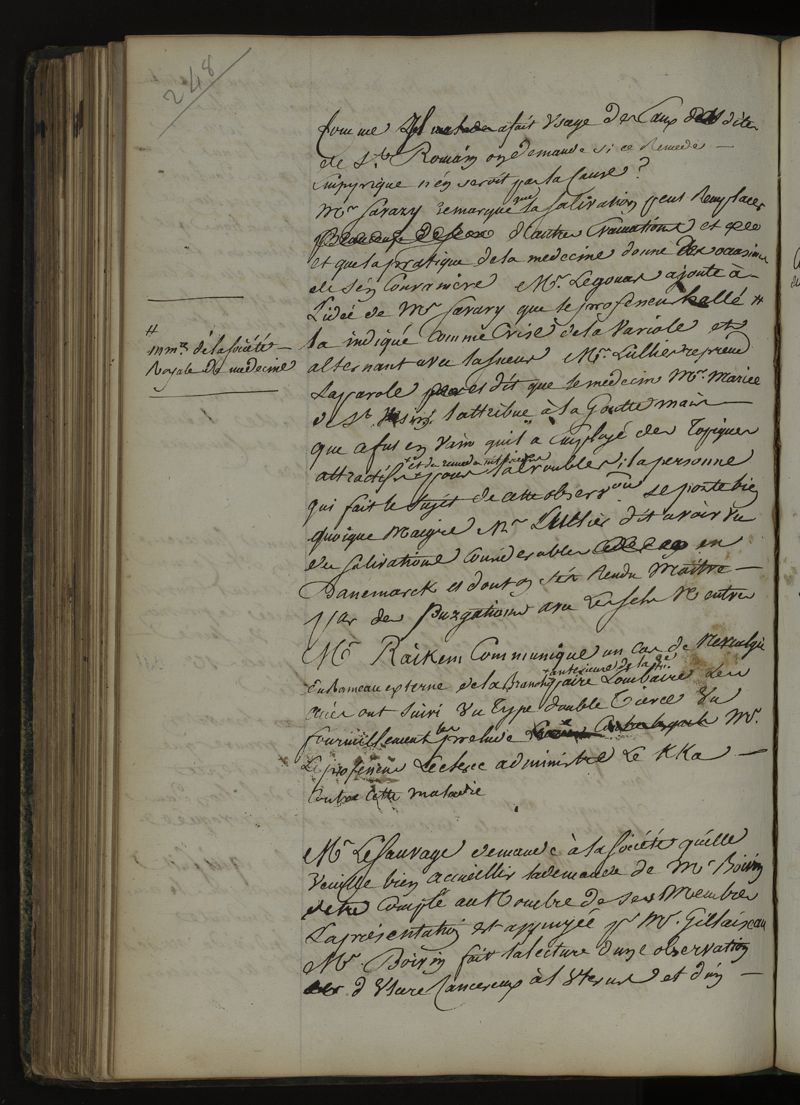 248
Comme Il malade a fait Usage des Eaux dites
de St. Romain on demande si ce Remede
Empyrique n'en seroit pas la Cause?
Mr Savary remarque que la Salivation peut Remplacer
d'autres Evacuations et que
et que la pratique de la medecine donne des occasions
de s'en Convaincre Mr. Legouas ajoute à
L'idée de Mr Savary que le professeur hallé #
la indiqué Comme Crise de la Variole et
alternant avec la sueur Mr. Lullier reprend
La parole et dit que le medecin Mr. Mariee
de St. l'attribue à la Goutte mais
que a fut en Vain qu'il a Employé des Topiques
attractifs + et des remedes interieurs pour la troubler; la personne
qui fait le Sujet de cette observon se porte bien
quoique Maigre Mr Lullier dit avoir Vu
des Salivations Considerables en
Danemarck et dont on s'est Rendu Maitre
par des Purgations avec Les sels Neutres
# mmres de la Société
Royale de medecine
Mr Raikem Communique un Cas de Nevralgie
Du Rameau externe de la Branche anterieure de la pre. paire Lombaire Les
accès ont Suivi Un Type double Tierce Un
fourmillement les prelude Mr.
Le professeur Leclerc administre Le KKa
Contre Cette maladie
Mr LeSauvage demande à la Société qu'elle
Veuille bien accueillir la demande de Mr Boivin
d'etre Compté au Nombre de ses Membres
La présentation est appuyée pr Mr. Gillaiseau
Mr. Boivin fait la lecture d'une observation
d'Ulcere Cancereux à l'Uterus et d'un